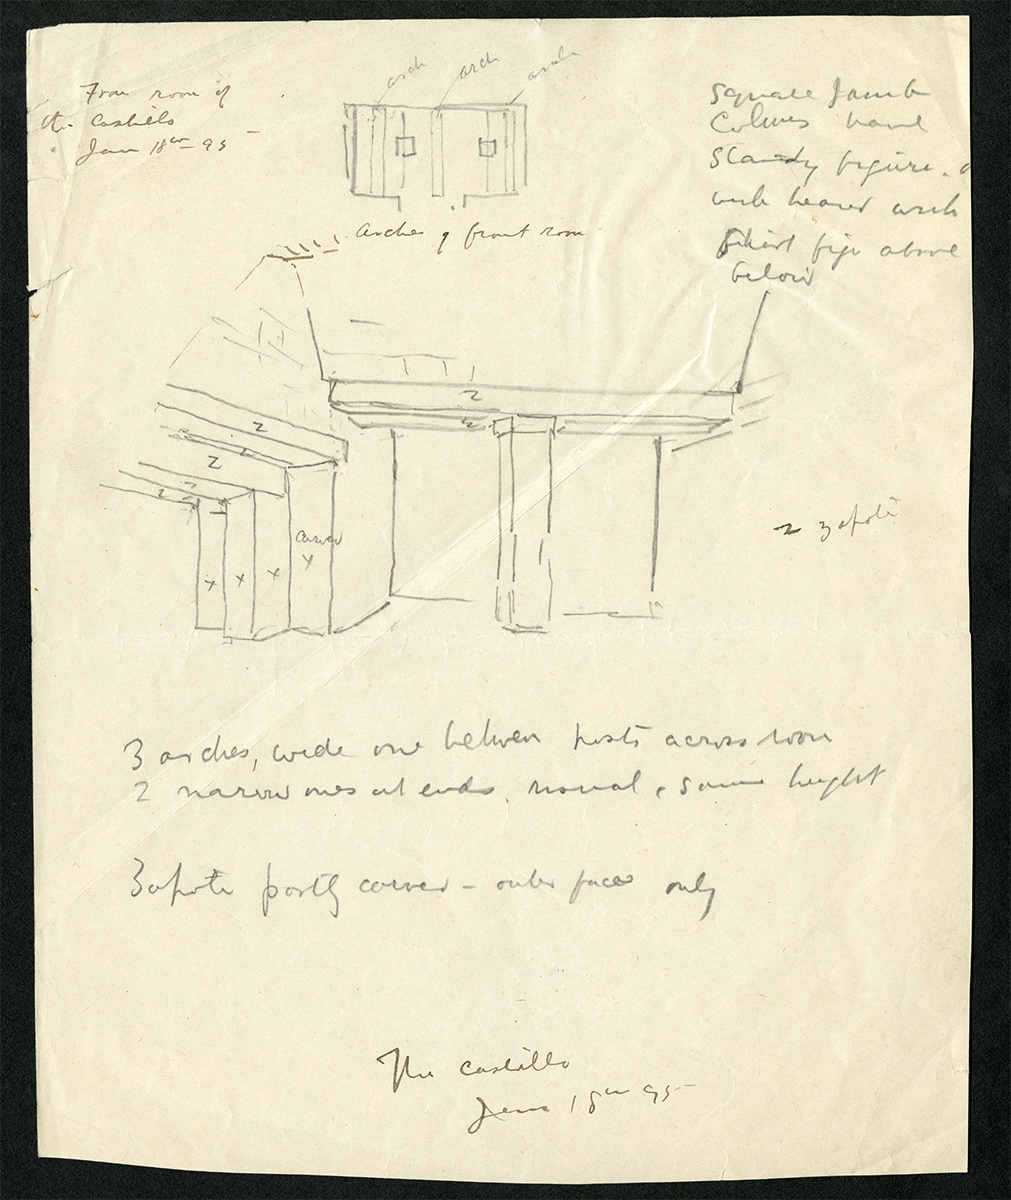 Front room of
the Castillo
Jan 18th 95
arch
arch
arch
Arches of front room
Square Jamb
Columns have
Standing figure
with beard with
figs above
below
2
2
2
2
2
2
carved
x
x
x
x
2 Zapote
3 arches, wide one between posts across room
2 narrow ones at ends, normal, same height
Zapote partly carved - outer faces only
The Castillo
Jan 18th 95